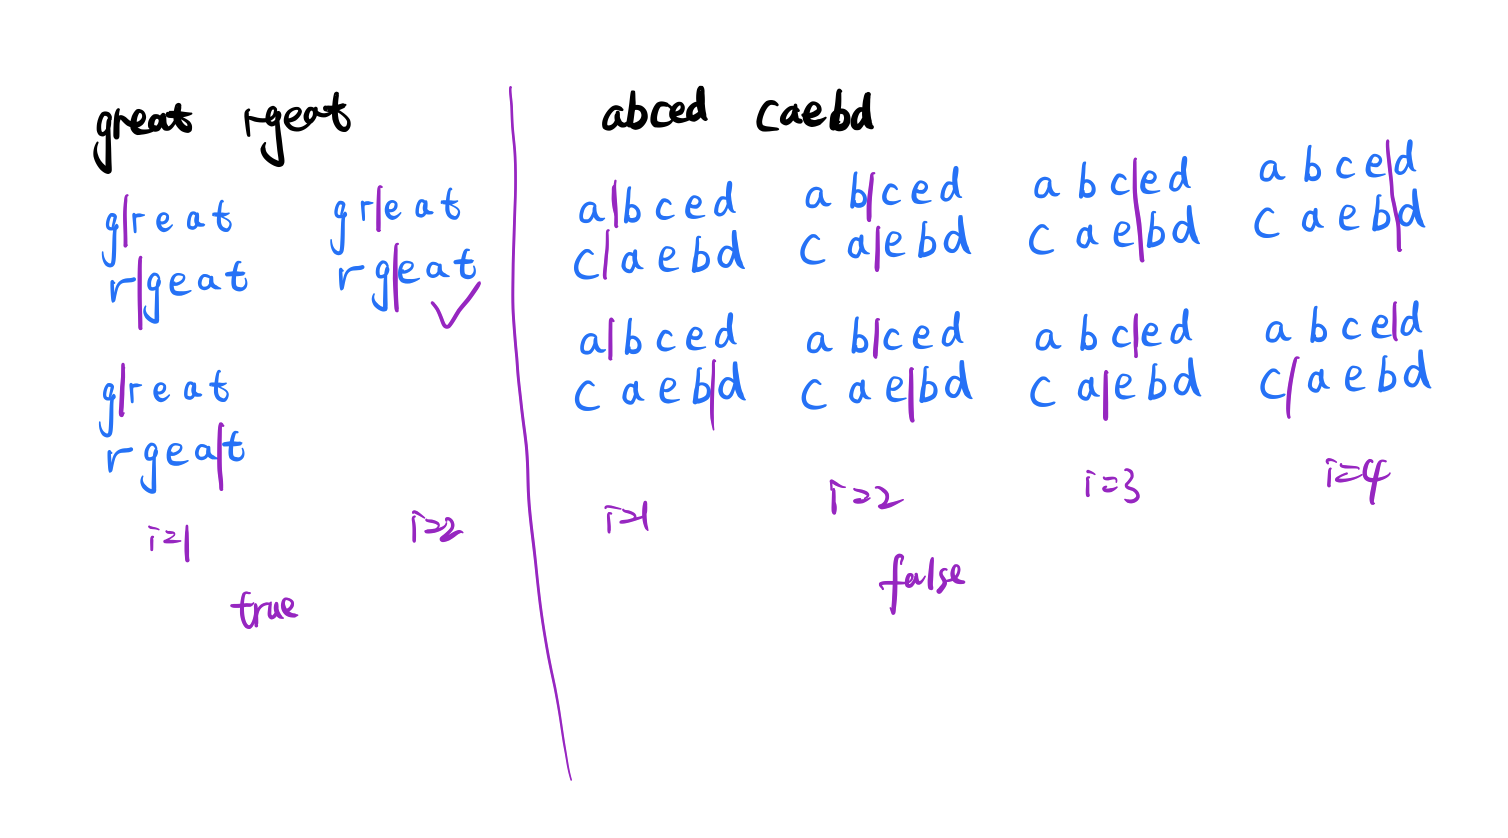 great rgeat
g|reat
r|geat
gr|eat
rg|eat
g|reat
rgea|t
i=1
i=2
true
abced caebd
a|bced
c|aebd
ab|ced
ca|ebd
abc|ed
cae|bd
abce|d
caeb|d
a|bced
caeb|d
ab|ced
cae|bd
abc|ed
ca|ebd
abce|d
c|aebd
i=1
i=2
i=3
i=4
false